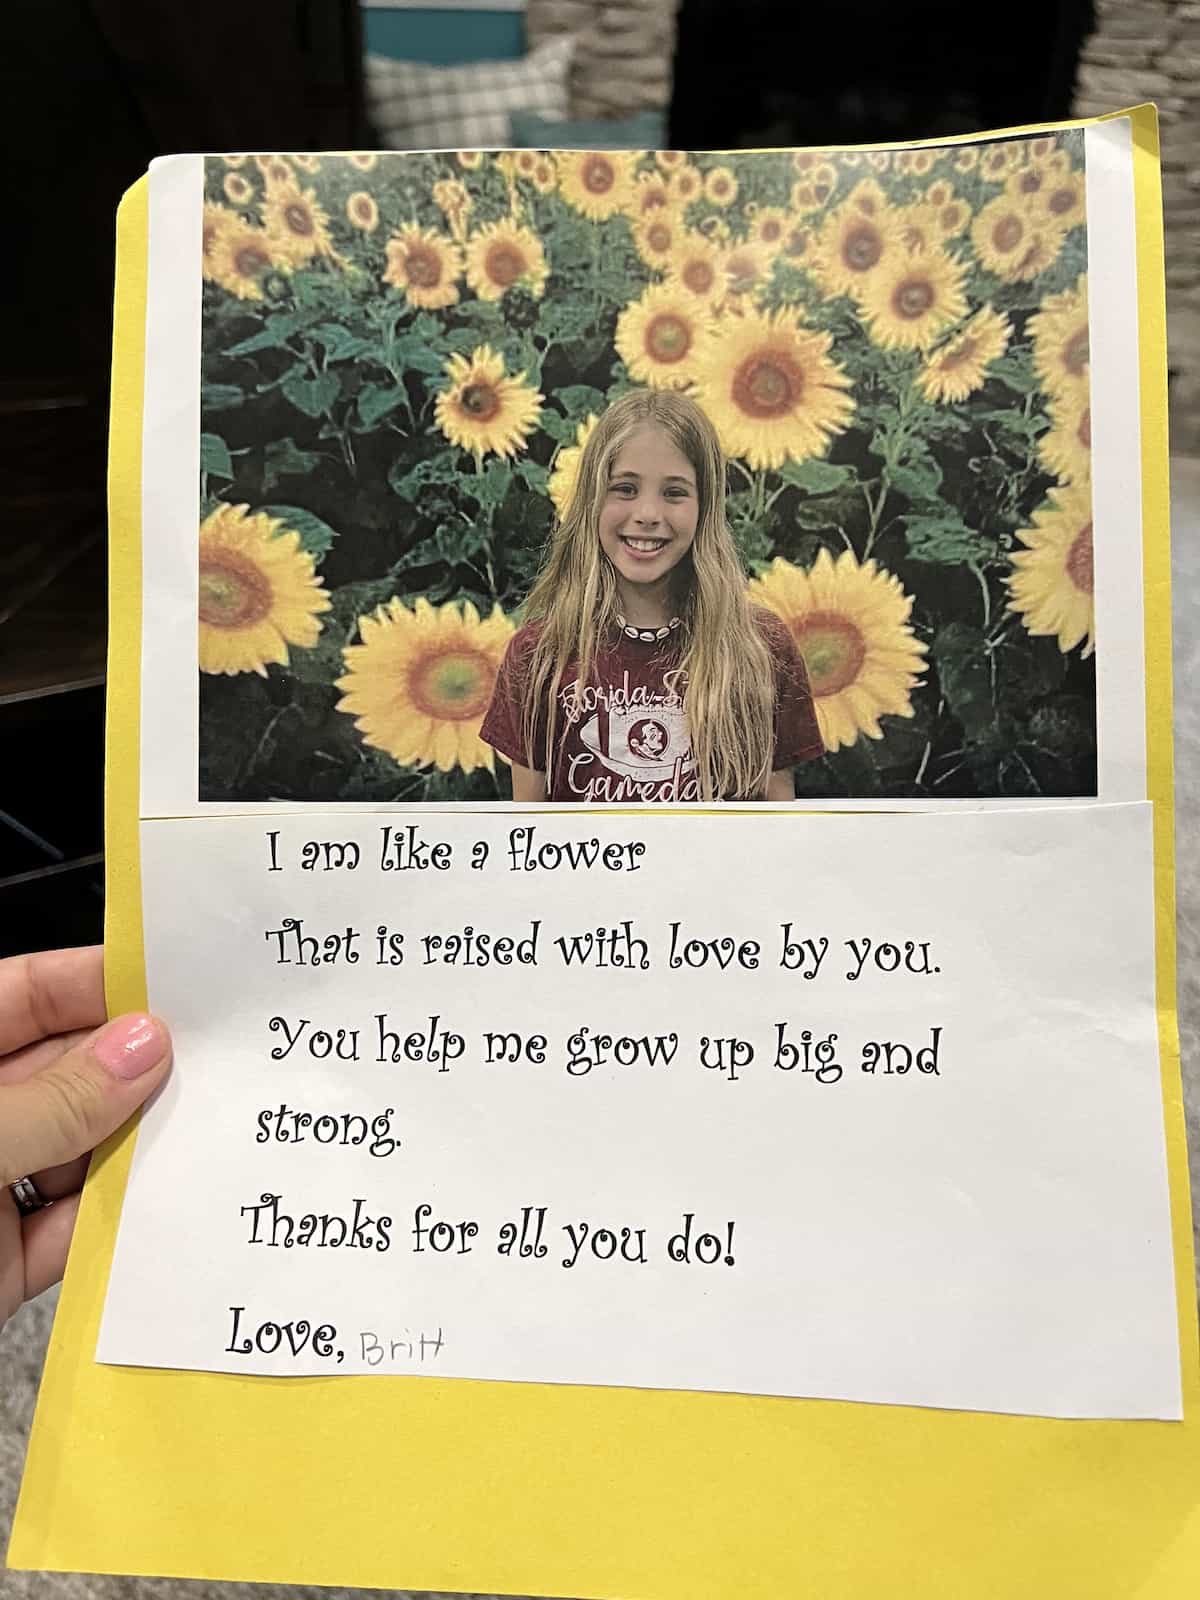 Florida S
Gameda
I am like a flower
That is raised with love by you.
You help me grow up big and
strong.
Thanks for all you do!
Love, Britt